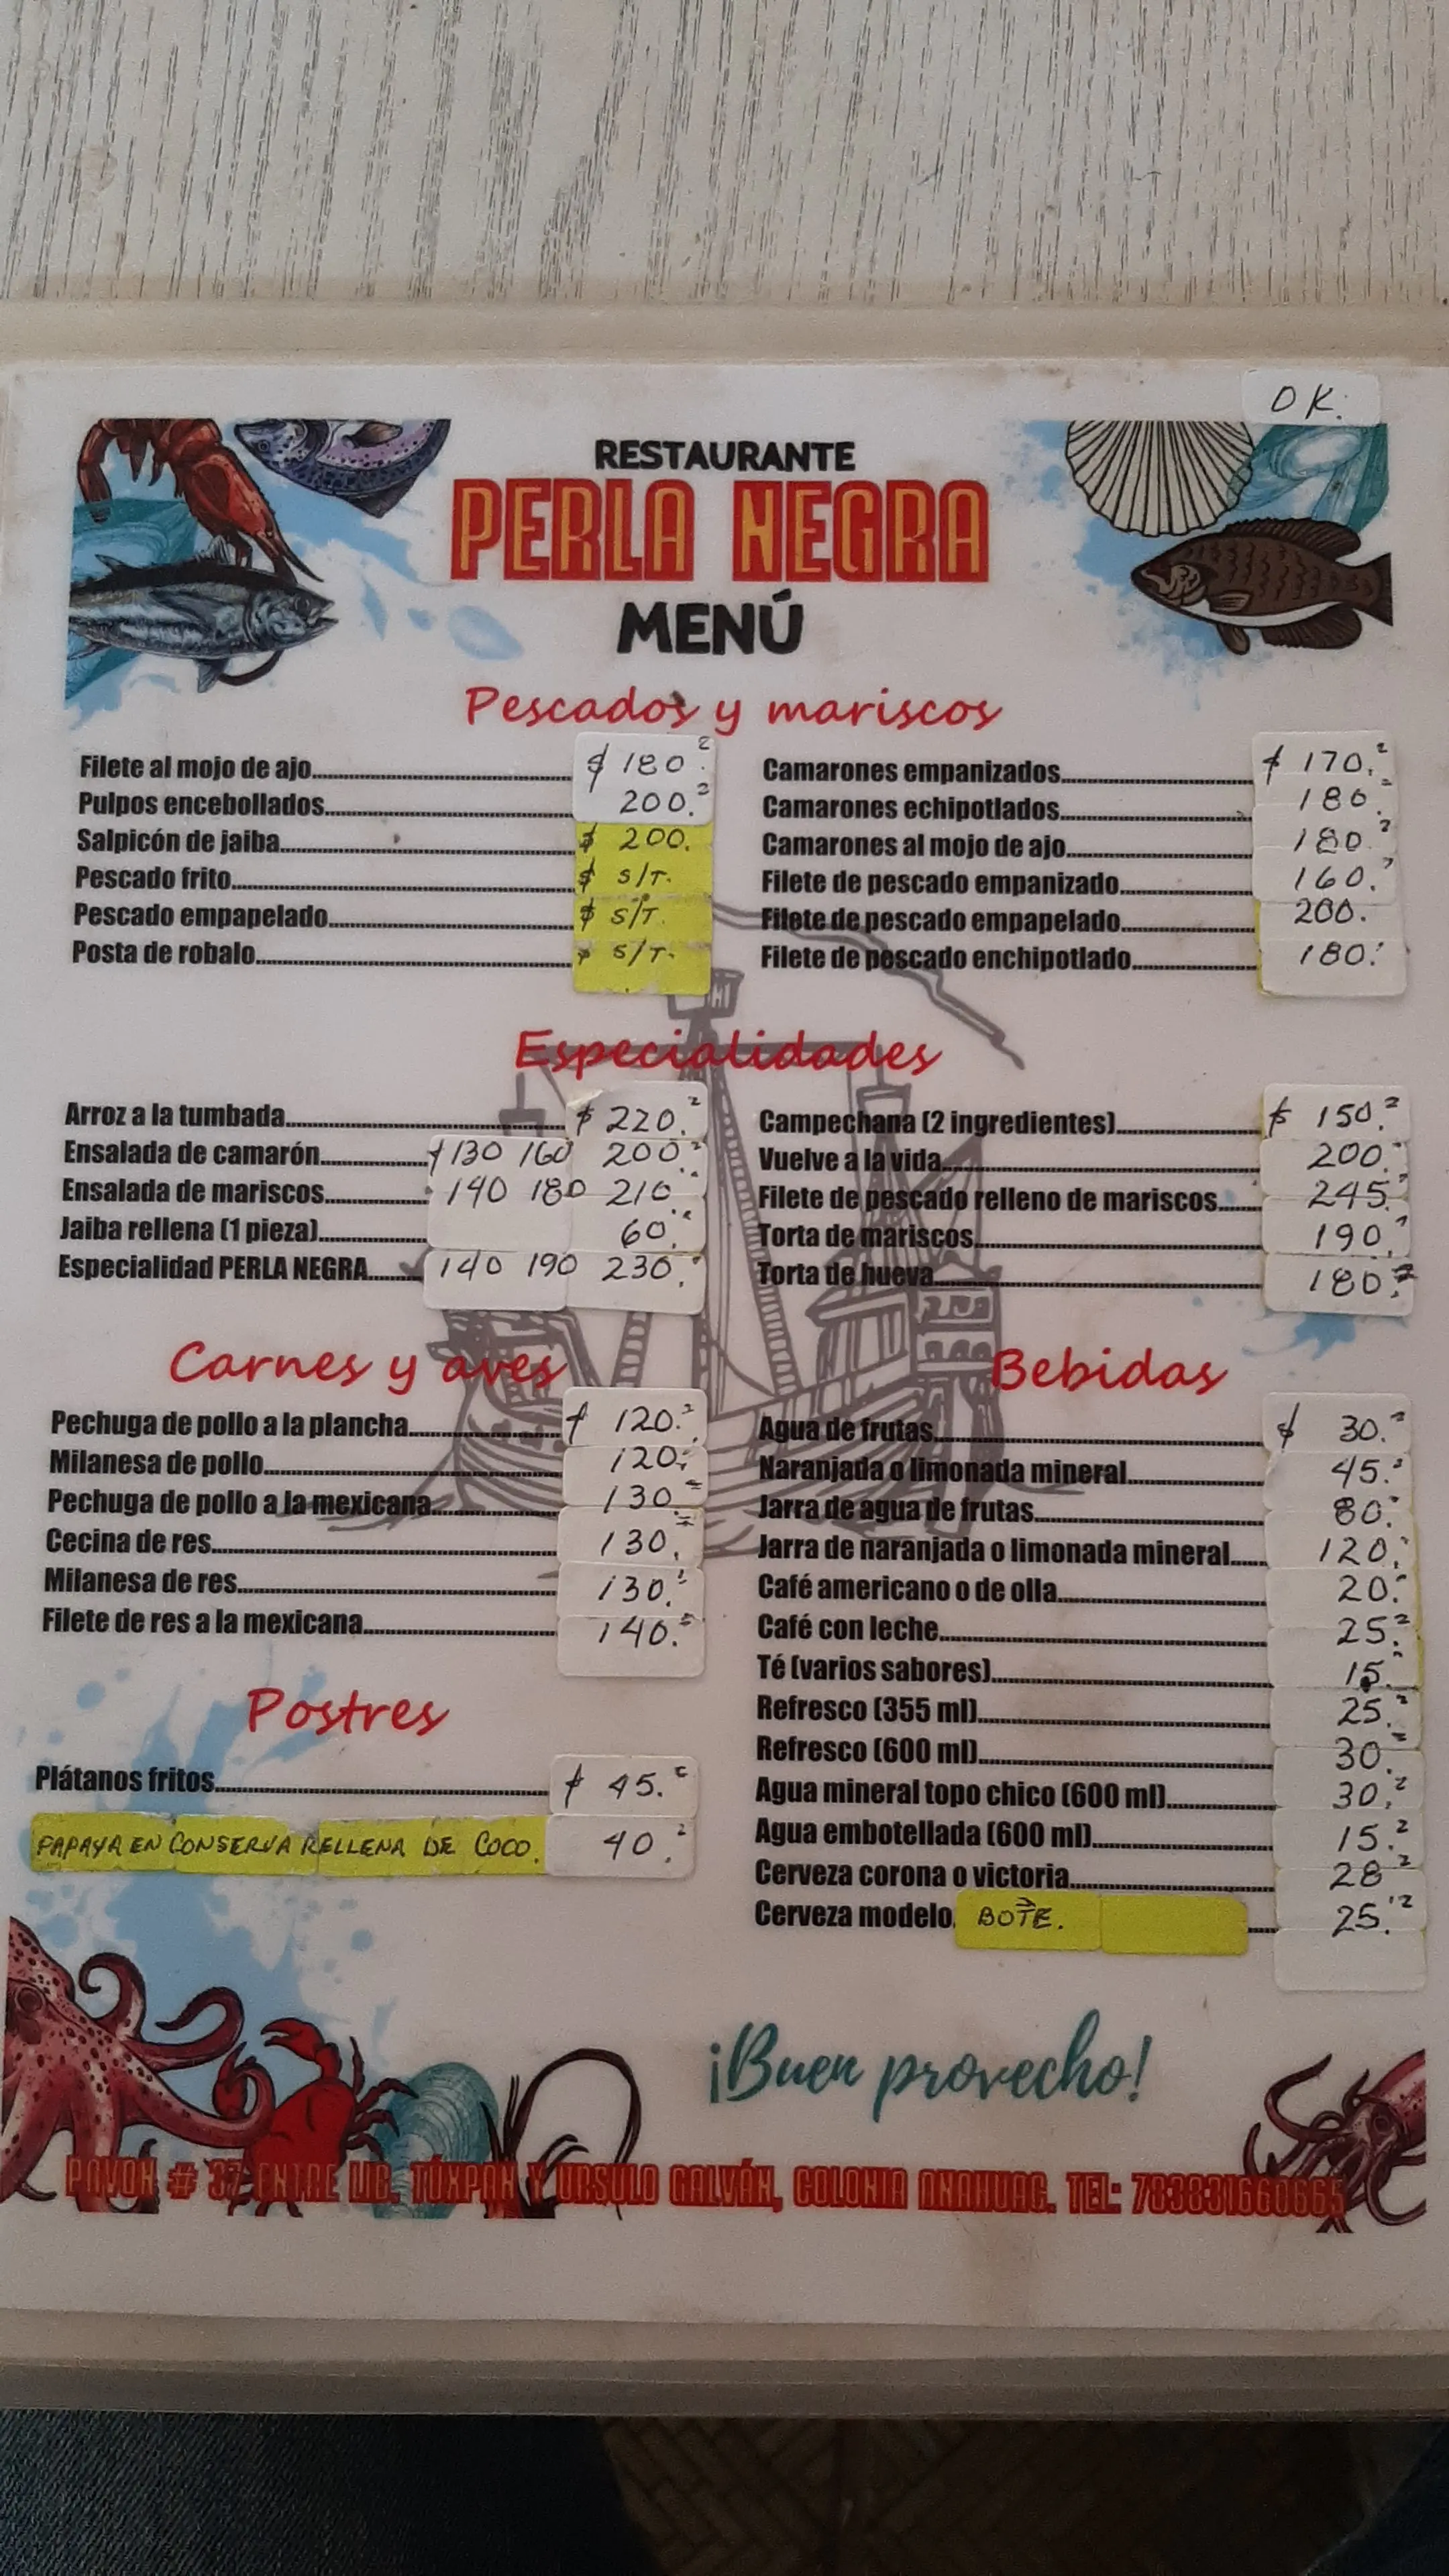 OK.
RESTAURANTE
PERLA NEGRA
MENÚ
Pescados y mariscos
Filete al mojo de ajo $ 180.
Pulpos encebollados 200.
Salpicón de jaiba $ 200.
Pescado frito $ S/T.
Pescado empapelado $ S/T.
Posta de robalo $ S/T.
Camarones empanizados $ 170.
Camarones echipotlados 180.
Camarones al mojo de ajo 180
Filete de pescado empanizado 160.
Filete de pescado empapelado 200.
Filete de pescado enchipotlado 180.
Especialidades
Arroz a la tumbada $ 220.
Ensalada de camarón $ 130 160 200
Ensalada de mariscos 140 180 210
Jaiba rellena (1 pieza) 60.
Especialidad PERLA NEGRA 140 190 230.
Campechana (2 ingredientes) $ 150.
Vuelve a la vida 200.
Filete de pescado relleno de mariscos 245.
Torta de mariscos 190.
Torta de hueva 180.
Carnes y aves
Pechuga de pollo a la plancha $ 120.
Milanesa de pollo 120.
Pechuga de pollo a la mexicana 130
Cecina de res 130.
Milanesa de res 130.
Filete de res a la mexicana 140.
Postres
Plátanos fritos $ 45.
PAPAYA EN CONSERVA RELLENA DE COCO. 40.
Bebidas
Agua de frutas $ 30.
Naranjada o limonada mineral 45.
Jarra de agua de frutas 80.
Jarra de naranjada o limonada mineral 120.
Café americano o de olla 20.
Café con leche 25.
Té (varios sabores) 15.
Refresco (355 ml) 25.
Refresco (600 ml) 30.
Agua mineral topo chico (600 ml) 30.
Agua embotellada (600 ml) 15.
Cerveza corona o victoria 28
Cerveza modelo BOTE. 25.
¡Buen provecho!
PAVON # 37 ENTRE LIC. TÚXPAN Y URSULO GALVÁN, COLONIA ANAHUAC. TEL: 783831660665